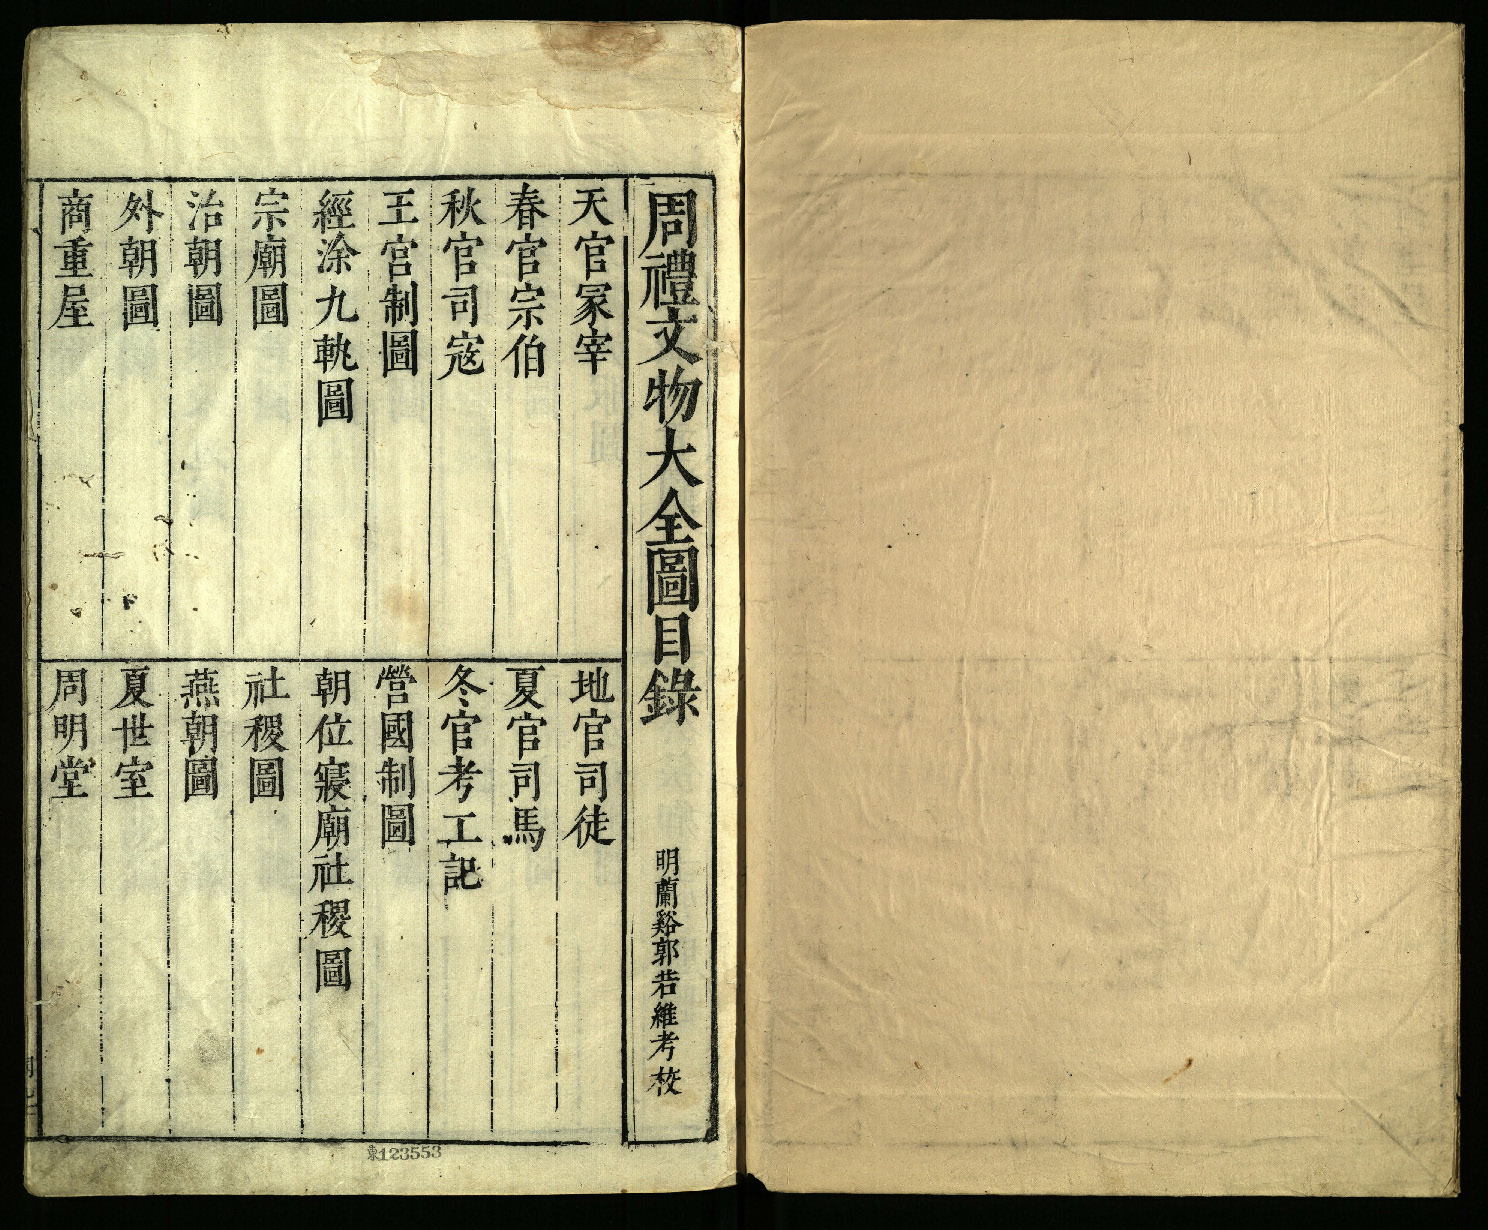 周禮文物大全圖目錄
明蘭谿郭若維考校
天官冡宰
地官司徒
春官宗伯
夏官司馬
秋官司寇
冬官考工記
王宮制圖
營國制圖
經涂九軌圖
朝位寢廟社稷圖
宗廟圖
社稷圖
治朝圖
燕朝圖
外朝圖
夏世室
商重屋
周明堂
東123553